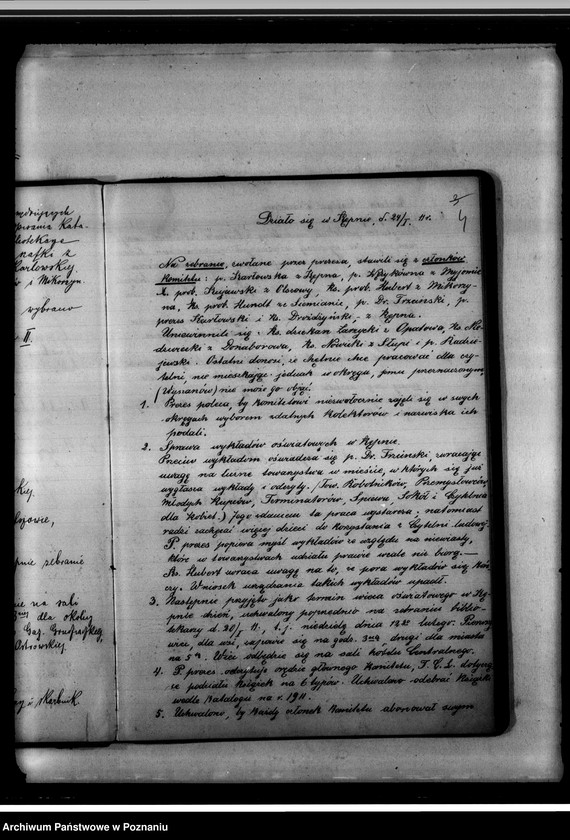 wybrano
II.
zebranie
na sali
dla okolicy
4
Działo się w Kępnie, d. 24/I 11 r.
Na zebranie, zwołane przez prezesa, stawili się z członków
Komitetu: p. Szarłowska z Kępna, p. z Myjomic
X. prob. Kujawski z Olszowy, ks. prob. Hubert z Mikorzy-
na, ks. prob. Hundt ze Siemianic, p. Dr. Trzciński, p.
prezes Szarłowski i ks. Drożdżyński z Kępna.
Uniewinnili się: ks. dziekan z Opatowa, ks. Nie-
dzwiecki z Donaborowa, ks. Nowicki z Słupi i p. Radzie-
jewski. Ostatni donosi, że chętnie chce pracować dla czy-
telni, nie mieszkając jednak w okręgu, jemu przeznaczonym,
nie może go objąć.
1. Prezes poleca, by Komitetowi niezwłocznie zajęli się w swych
okręgach wyborem zdatnych kolektorów i nazwiska ich
podali.
2. Sprawa wykładów oświatowych w Kępnie.
Przeciw wykładom oświadcza się p. Dr. Trzciński, zwracając
uwagę na liczne towarzystwa w mieście, w których się już
wygłasza wykłady i odczyty. (Tow. Robotników, Przemysłowców,
Młodych Kupców, Terminatorów, Śpiewu, Sokół i Czytelnia
dla kobiet.) Jego zdaniem ta praca wystarcza; natomiast
radzi zachęcać więcej dzieci do korzystania z Czytelni ludowej.
P. prezes popiera myśl wykładów ze względu na niewiasty,
które w towarzystwach udziału prawie wcale nie biorą.—
Ks. Hubert zwraca uwagę na to, że pora wykładów się koń-
czy. Wniosek urządzania takich wykładów upadł.
3. Następnie przyjęto jako termin wieca oświatowego w Kę-
pnie dzień, uchwalony poprzednio na zebraniu biblio-
tekarzy d. 20/I 11, t. j. niedzielę dnia 12go lutego. Pierwszy
wiec, dla wsi, zapowie się na godz. 3cią drugi dla miasta
na 5tą. Wiec odbędzie się na sali hotelu Centralnego.
4. P. prezes odczytuje orędzie głównego Komitetu, T. C. L. dotyczą-
ce podziału książek na 6 typów. Uchwalono odebrać książki
wedle katalogu na r. 1911.
5. Uchwalono, by każdy członek Komitetu abonował swym
Archiwum Państwowe w Poznaniu